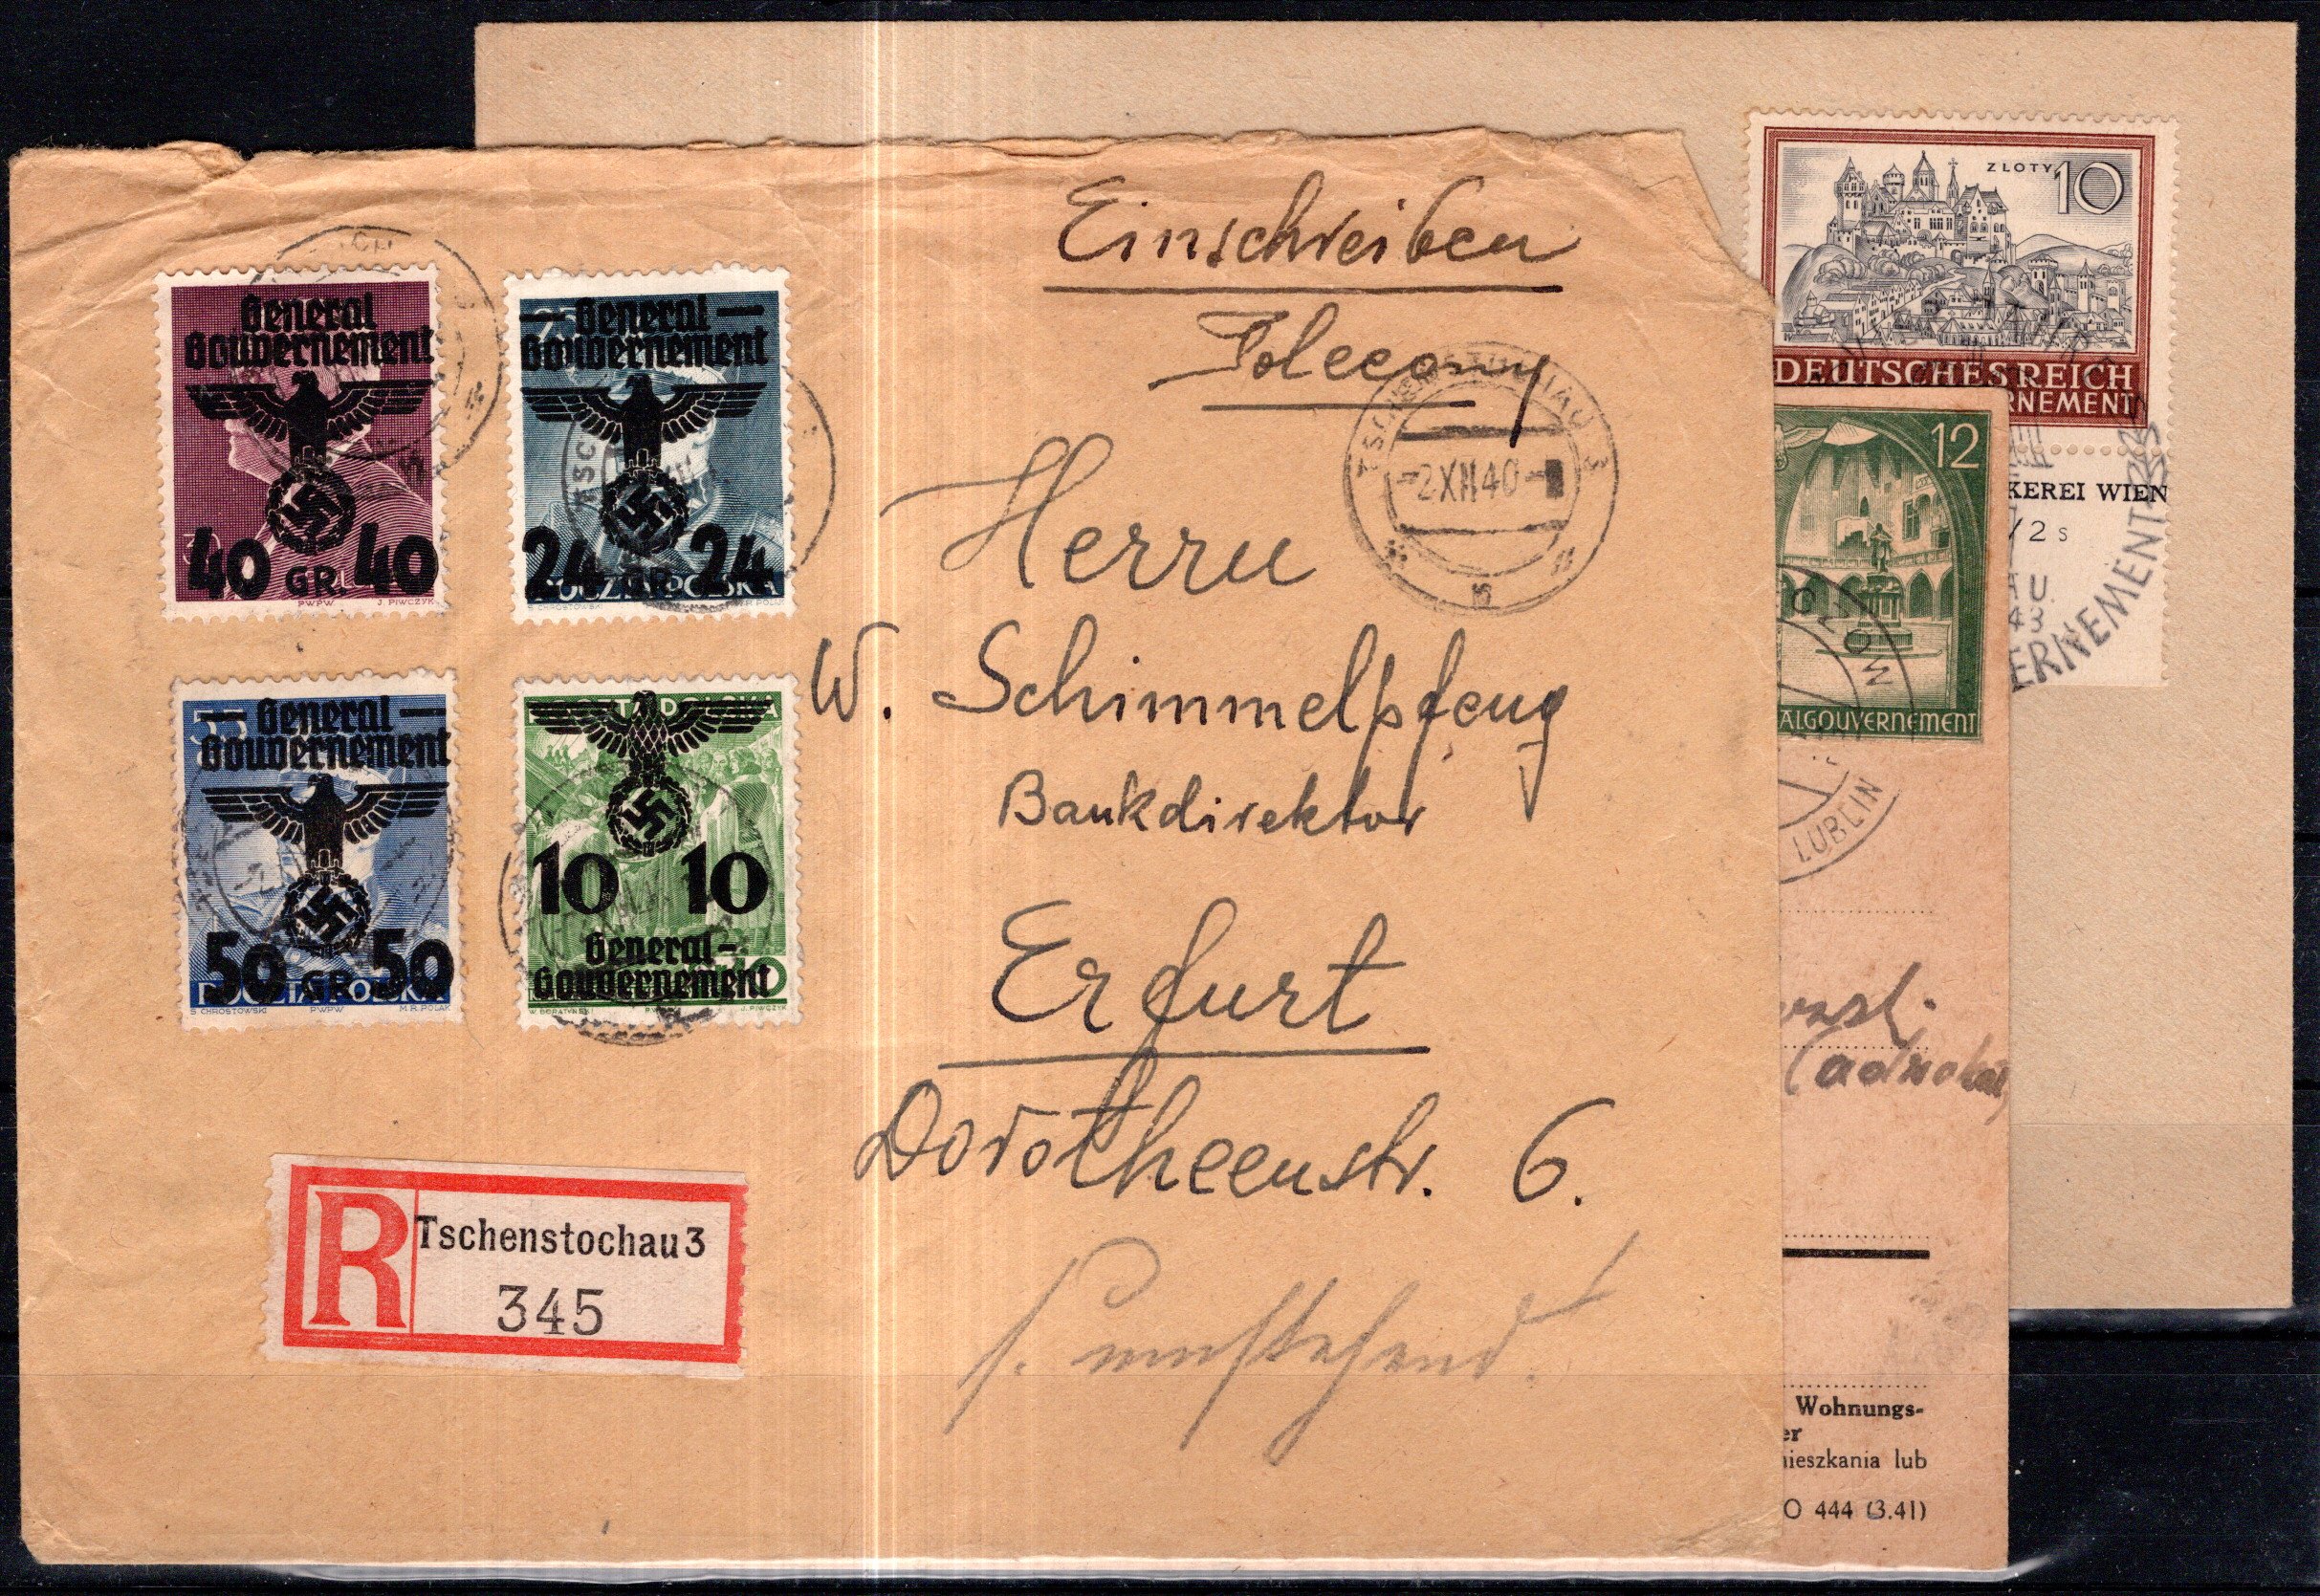 Einschreiben
Polecony
Herrn
W. Schimmelpfeng
Bankdirektor
Erfurt
Dorotheenstr. 6.
s. umstehend!
TSCHENSTOCHAU 3
-2.XII.40-
General
Gouvernement
40 GR. 40
PWPW J. PIWCZYK
25
General
Gouvernement
24 GR. 24
POCZTA POLSKA
S. CHROSTOWSKI M.R. POLAK
55
General
Gouvernement
50 GR. 50
POCZTA POLSKA
S. CHROSTOWSKI PWPW M.R. POLAK
10 10
General-
Gouvernement
J. PIWCZYK
R Tschenstochau 3
345
ZLOTY 10
DEUTSCHES REICH
RNEMENT
KEREI WIEN
/2 s
AU
43
ERNEMENT
12
ALGOUVERNEMENT
LUBLIN
wski
(adwokat)
Wohnungs-
er
mieszkania lub
O 444 (3.41)